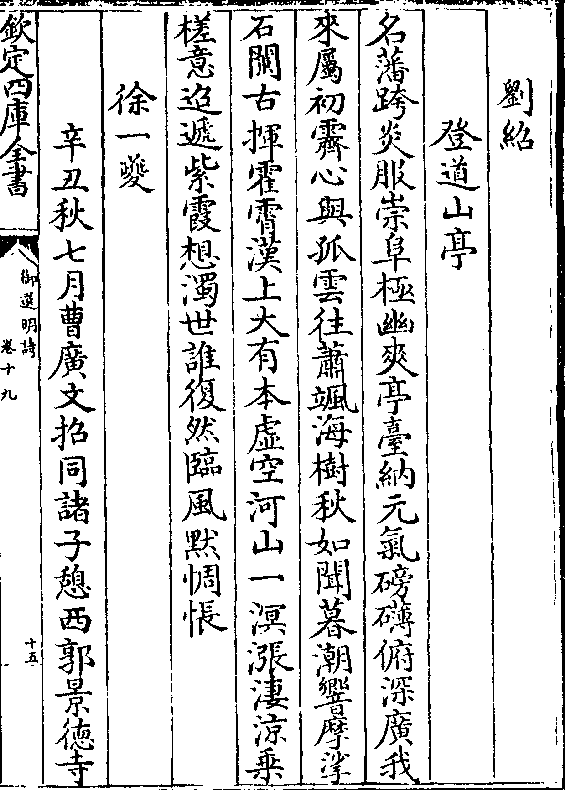 劉紹
登道山亭
名藩跨炎服崇阜極幽爽亭臺納元氣磅礴俯深廣我
來屬初霽心與孤雲往蕭颯海樹秋如聞暮潮響摩挲
石闌古揮霍霄漢上大有本虛空河山一溟漲淒涼乗
槎意迢遞紫霞想濁世誰復然臨風黙惆悵
徐一夔
辛丑秋七月曹廣文招同諸子憩西郭景徳寺
欽定四庫全書
御選明詩
卷十九
十五